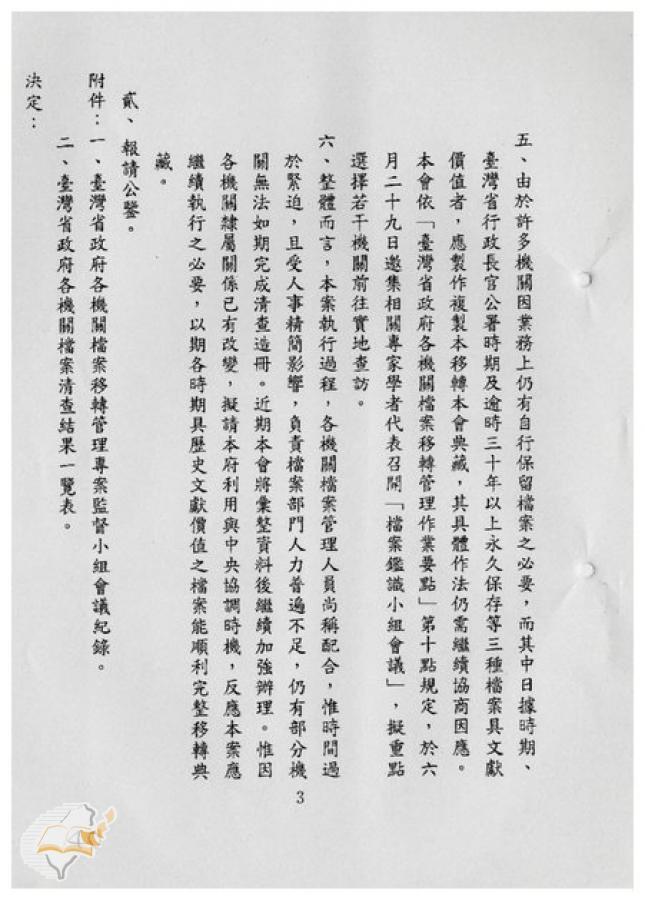 五、由於許多機關因業務上仍有自行保留檔案之必要，而其中日據時期、
臺灣省行政長官公署時期及逾時三十年以上永久保存等三種檔案具文獻
價值者，應製作複製本移轉本會典藏，其具體作法仍需繼續協商因應。
本會依「臺灣省政府各機關檔案移轉管理作業要點」第十點規定，於六
月二十九日邀集相關專家學者代表召開「檔案鑑識小組會議」，擬重點
選擇若干機關前往實地查訪。
六、整體而言，本案執行過程，各機關檔案管理人員尚稱配合，惟時間過
於緊迫，且受人事精簡影響，負責檔案部門人力普遍不足，仍有部分機
關無法如期完成清查造冊。近期本會將彙整資料後繼續加強辦理。惟因
各機關隸屬關係已有改變，擬請本府利用與中央協調時機，反應本案應
繼續執行之必要，以期各時期具歷史文獻價值之檔案能順利完整移轉典
藏。
貳、報請公鑒。
附件：一、臺灣省政府各機關檔案移轉管理專案監督小組會議紀錄。
二、臺灣省政府各機關檔案清查結果一覽表。
決定：
3